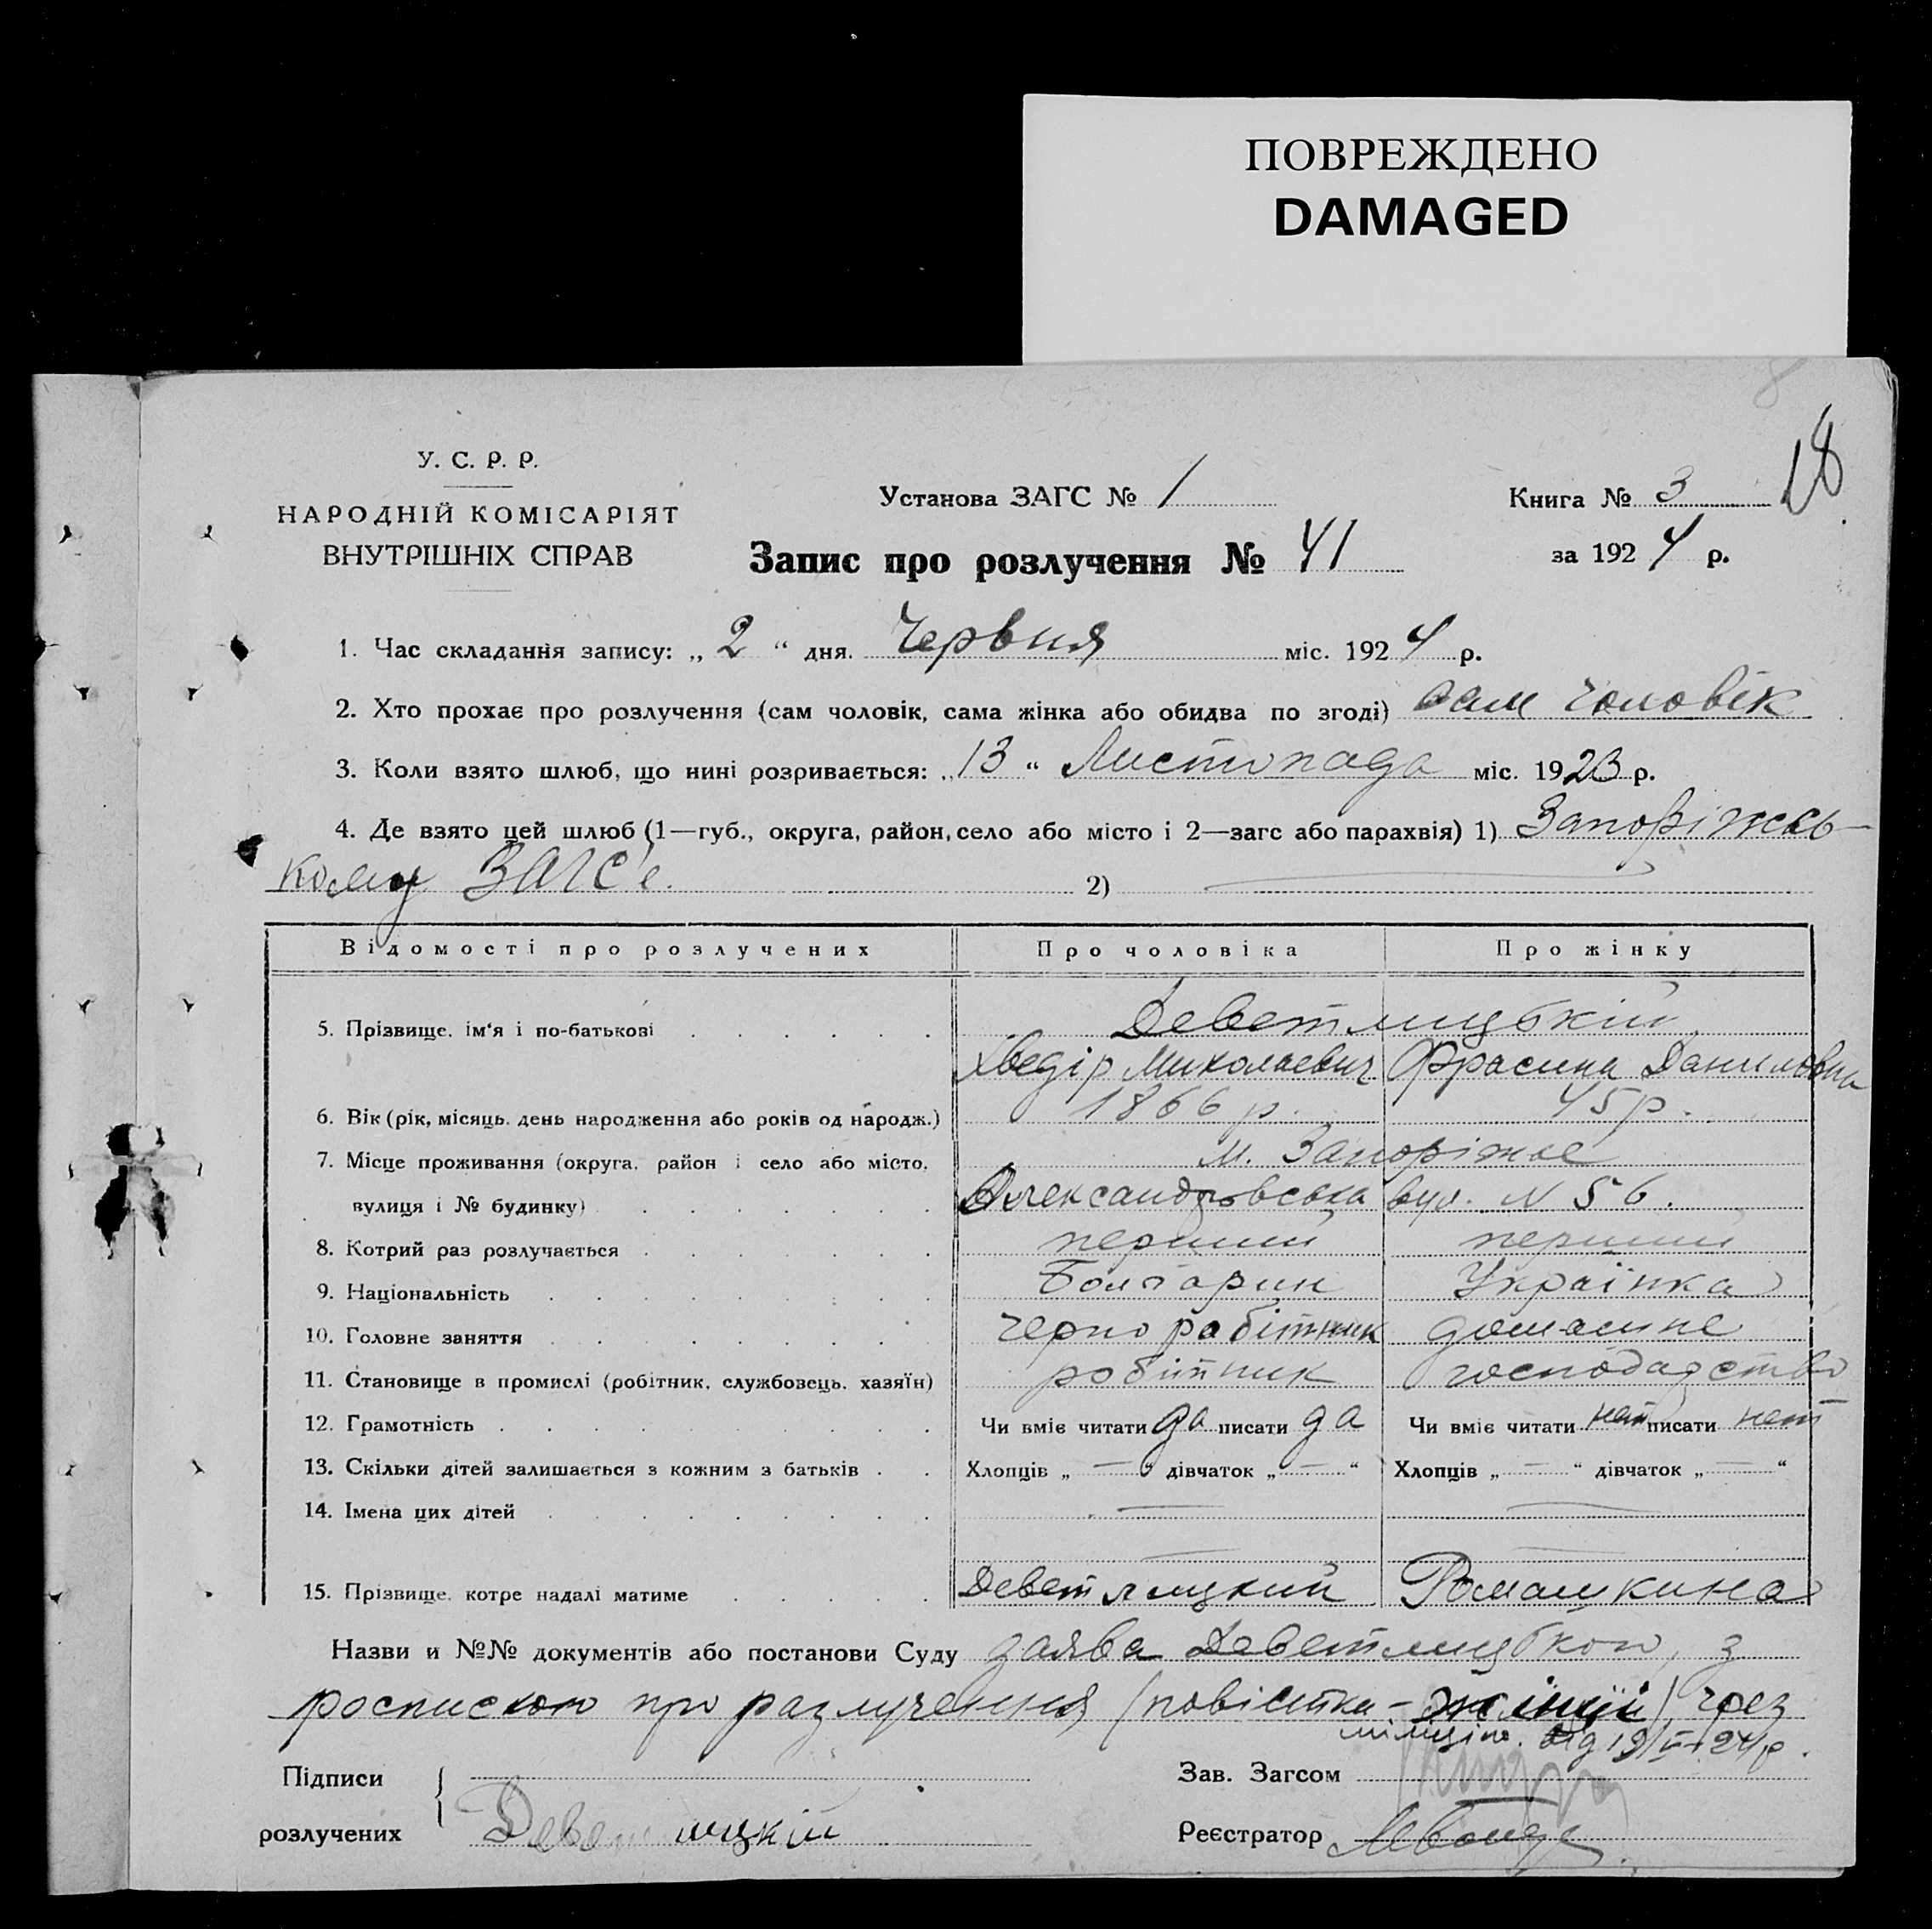 ПОВРЕЖДЕНО
DAMAGED
8
18
У. С. Р. Р.
НАРОДНІЙ КОМІСАРІЯТ
ВНУТРІШНІХ СПРАВ
Установа ЗАГС № 1
Книга № 3
Запис про розлучення № 41
за 1924 р.
1. Час складання запису: „ 2 “ дня. Червня міс. 1924 р.
2. Хто прохає про розлучення (сам чоловік, сама жінка або обидва по згоді) сам чоловік
3. Коли взято шлюб, що нині розривається: „ 13 “ Листопада міс. 1923 р.
4. Де взято цей шлюб (1—губ., округа, район, село або місто і 2—загс або парахвія) 1) Запоріжсь-
кому ЗАГС'е. 2)
Відомості про розлучених Про чоловіка Про жінку
5. Прізвище, ім'я і по-батькові Деветлицький
Хведір Миколаевич Фрасина Даниловна
6. Вік (рік, місяць, день народження або років од народж.) 1866 р. 45 р.
7. Місце проживання (округа, район і село або місто, м. Запоріжже
вулиця і № будинку) Олександровська вул. N 56.
8. Котрий раз розлучається перший перший
9. Національність Болгарин Українка
10. Головне заняття чернороботник домашне
11. Становище в промислі (робітник, службовець, хазяїн) робітник господарство
12. Грамотність Чи вміє читати да писати да Чи вміє читати нет писати нет
13. Скільки дітей залишається з кожним з батьків Хлопців „ — “ дівчаток „ — “ Хлопців „ — “ дівчаток „ — “
14. Імена цих дітей — —
15. Прізвище, котре надалі матиме Деветлицкий Ромашкина
Назви и №№ документів або постанови Суду заява Деветлицького, з
роспискою про разлучення (повістка - жінції) чрез
міліцію. від 19/ 24 р.
Підписи
розлучених Деветлицкій
Зав. Загсом
Реєстратор